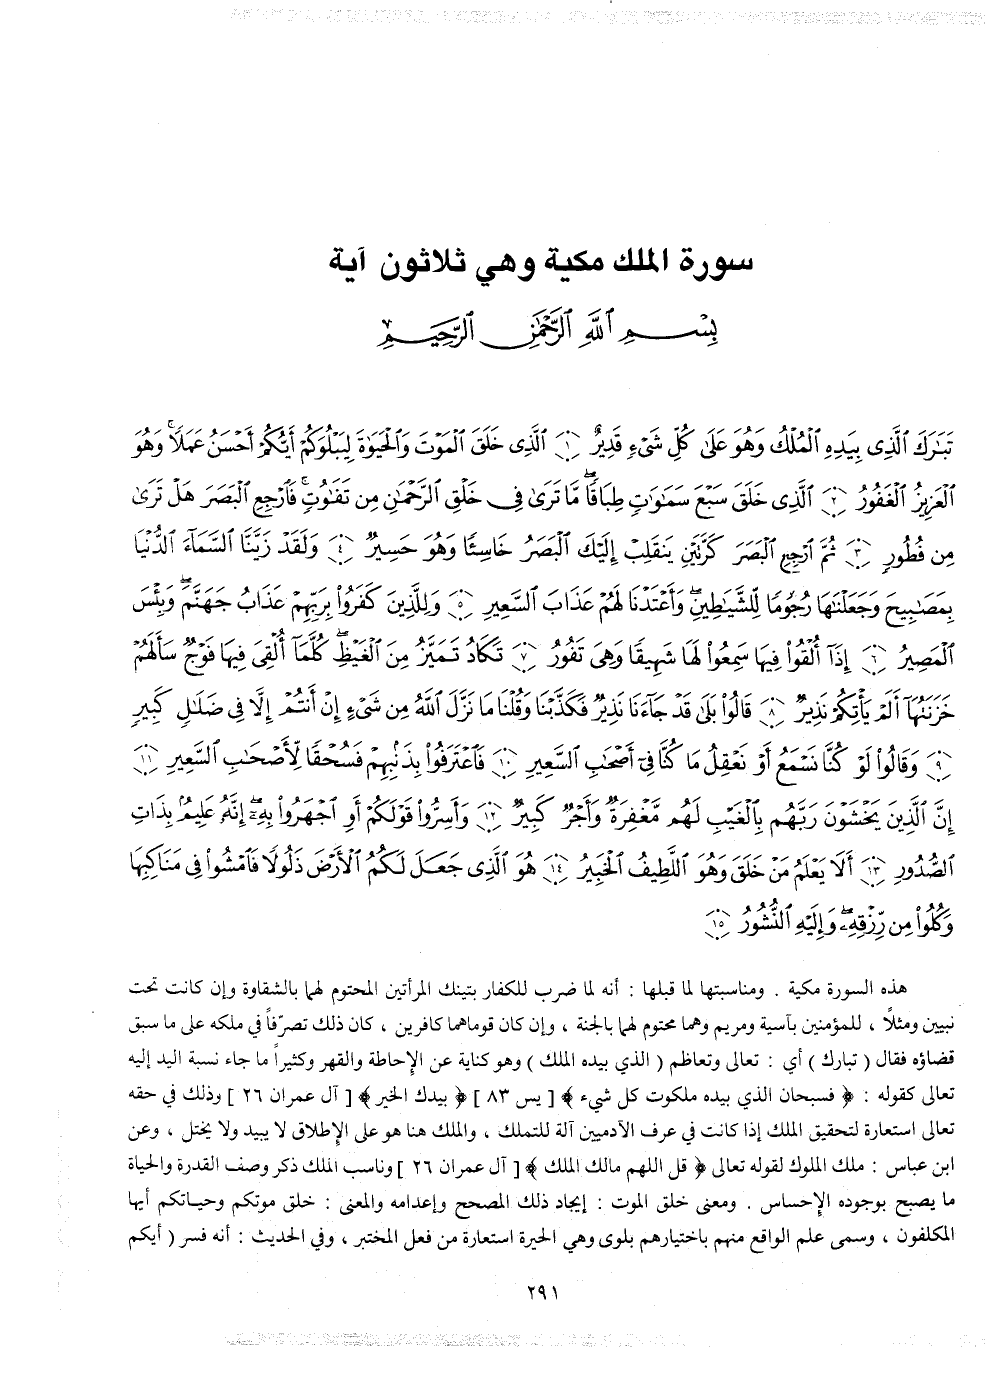 سورة الملك مكية وهي ثلاثون آية
بِسْمِ ٱللَّهِ ٱلرَّحْمَٰنِ ٱلرَّحِيمِ
تَبَٰرَكَ ٱلَّذِى بِيَدِهِ ٱلْمُلْكُ وَهُوَ عَلَىٰ كُلِّ شَىْءٍ قَدِيرٌ ١ ٱلَّذِى خَلَقَ ٱلْمَوْتَ وَٱلْحَيَوٰةَ لِيَبْلُوَكُمْ أَيُّكُمْ أَحْسَنُ عَمَلًا ۚ وَهُوَ
ٱلْعَزِيزُ ٱلْغَفُورُ ٢ ٱلَّذِى خَلَقَ سَبْعَ سَمَٰوَٰتٍ طِبَاقًا ۖ مَّا تَرَىٰ فِى خَلْقِ ٱلرَّحْمَٰنِ مِن تَفَٰوُتٍ ۚ فَٱرْجِعِ ٱلْبَصَرَ هَلْ تَرَىٰ
مِن فُطُورٍ ٣ ثُمَّ ٱرْجِعِ ٱلْبَصَرَ كَرَّتَيْنِ يَنقَلِبْ إِلَيْكَ ٱلْبَصَرُ خَاسِئًا وَهُوَ حَسِيرٌ ٤ وَلَقَدْ زَيَّنَّا ٱلسَّمَآءَ ٱلدُّنْيَا
بِمَصَٰبِيحَ وَجَعَلْنَٰهَا رُجُومًا لِّلشَّيَٰطِينِ ۖ وَأَعْتَدْنَا لَهُمْ عَذَابَ ٱلسَّعِيرِ ٥ وَلِلَّذِينَ كَفَرُوا۟ بِرَبِّهِمْ عَذَابُ جَهَنَّمَ ۖ وَبِئْسَ
ٱلْمَصِيرُ ٦ إِذَآ أُلْقُوا۟ فِيهَا سَمِعُوا۟ لَهَا شَهِيقًا وَهِىَ تَفُورُ ٧ تَكَادُ تَمَيَّزُ مِنَ ٱلْغَيْظِ ۖ كُلَّمَآ أُلْقِىَ فِيهَا فَوْجٌ سَأَلَهُمْ
خَزَنَتُهَآ أَلَمْ يَأْتِكُمْ نَذِيرٌ ٨ قَالُوا۟ بَلَىٰ قَدْ جَآءَنَا نَذِيرٌ فَكَذَّبْنَا وَقُلْنَا مَا نَزَّلَ ٱللَّهُ مِن شَىْءٍ إِنْ أَنتُمْ إِلَّا فِى ضَلَٰلٍ كَبِيرٍ
٩ وَقَالُوا۟ لَوْ كُنَّا نَسْمَعُ أَوْ نَعْقِلُ مَا كُنَّا فِىٓ أَصْحَٰبِ ٱلسَّعِيرِ ١٠ فَٱعْتَرَفُوا۟ بِذَنۢبِهِمْ فَسُحْقًا لِّأَصْحَٰبِ ٱلسَّعِيرِ ١١
إِنَّ ٱلَّذِينَ يَخْشَوْنَ رَبَّهُم بِٱلْغَيْبِ لَهُم مَّغْفِرَةٌ وَأَجْرٌ كَبِيرٌ ١٢ وَأَسِرُّوا۟ قَوْلَكُمْ أَوِ ٱجْهَرُوا۟ بِهِۦٓ ۖ إِنَّهُۥ عَلِيمٌۢ بِذَاتِ
ٱلصُّدُورِ ١٣ أَلَا يَعْلَمُ مَنْ خَلَقَ وَهُوَ ٱللَّطِيفُ ٱلْخَبِيرُ ١٤ هُوَ ٱلَّذِى جَعَلَ لَكُمُ ٱلْأَرْضَ ذَلُولًا فَٱمْشُوا۟ فِى مَنَاكِبِهَا
وَكُلُوا۟ مِن رِّزْقِهِۦ ۖ وَإِلَيْهِ ٱلنُّشُورُ ١٥
هذه السورة مكية . ومناسبتها لما قبلها : أنه لما ضرب للكفار بتينك المرأتين المحتوم لهما بالشقاوة وإن كانت تحت
نبيين ومثلاً ، للمؤمنين بآسية ومريم وهما محتوم لهما بالجنة ، وإن كان قوماهما كافرين ، كان ذلك تصرّفاً في ملكه على ما سبق
قضاؤه فقال ( تبارك ) أي : تعالى وتعاظم ( الذي بيده الملك ) وهو كناية عن الإحاطة والقهر وكثيراً ما جاء نسبة اليد إليه
تعالى كقوله : ﴿ فسبحان الذي بيده ملكوت كل شيء ﴾ [ يس ٨٣ ] ﴿ بيدك الخير ﴾ [ آل عمران ٢٦ ] وذلك في حقه
تعالى استعارة لتحقيق الملك إذا كانت في عرف الآدميين آلة للتملك ، والملك هنا هو على الإطلاق لا يبيد ولا يختل ، وعن
ابن عباس : ملك الملوك لقوله تعالى ﴿ قل اللهم مالك الملك ﴾ [ آل عمران ٢٦ ] وناسب الملك ذكر وصف القدرة والحياة
ما يصبح بوجوده الإحساس . ومعنى خلق الموت : إيجاد ذلك المصحح وإعدامه والمعنى : خلق موتكم وحياتكم أيها
المكلفون ، وسمى علم الواقع منهم باختيارهم بلوى وهي الحيرة استعارة من فعل المختبر ، وفي الحديث : أنه فسر ( أيكم
٢٩١